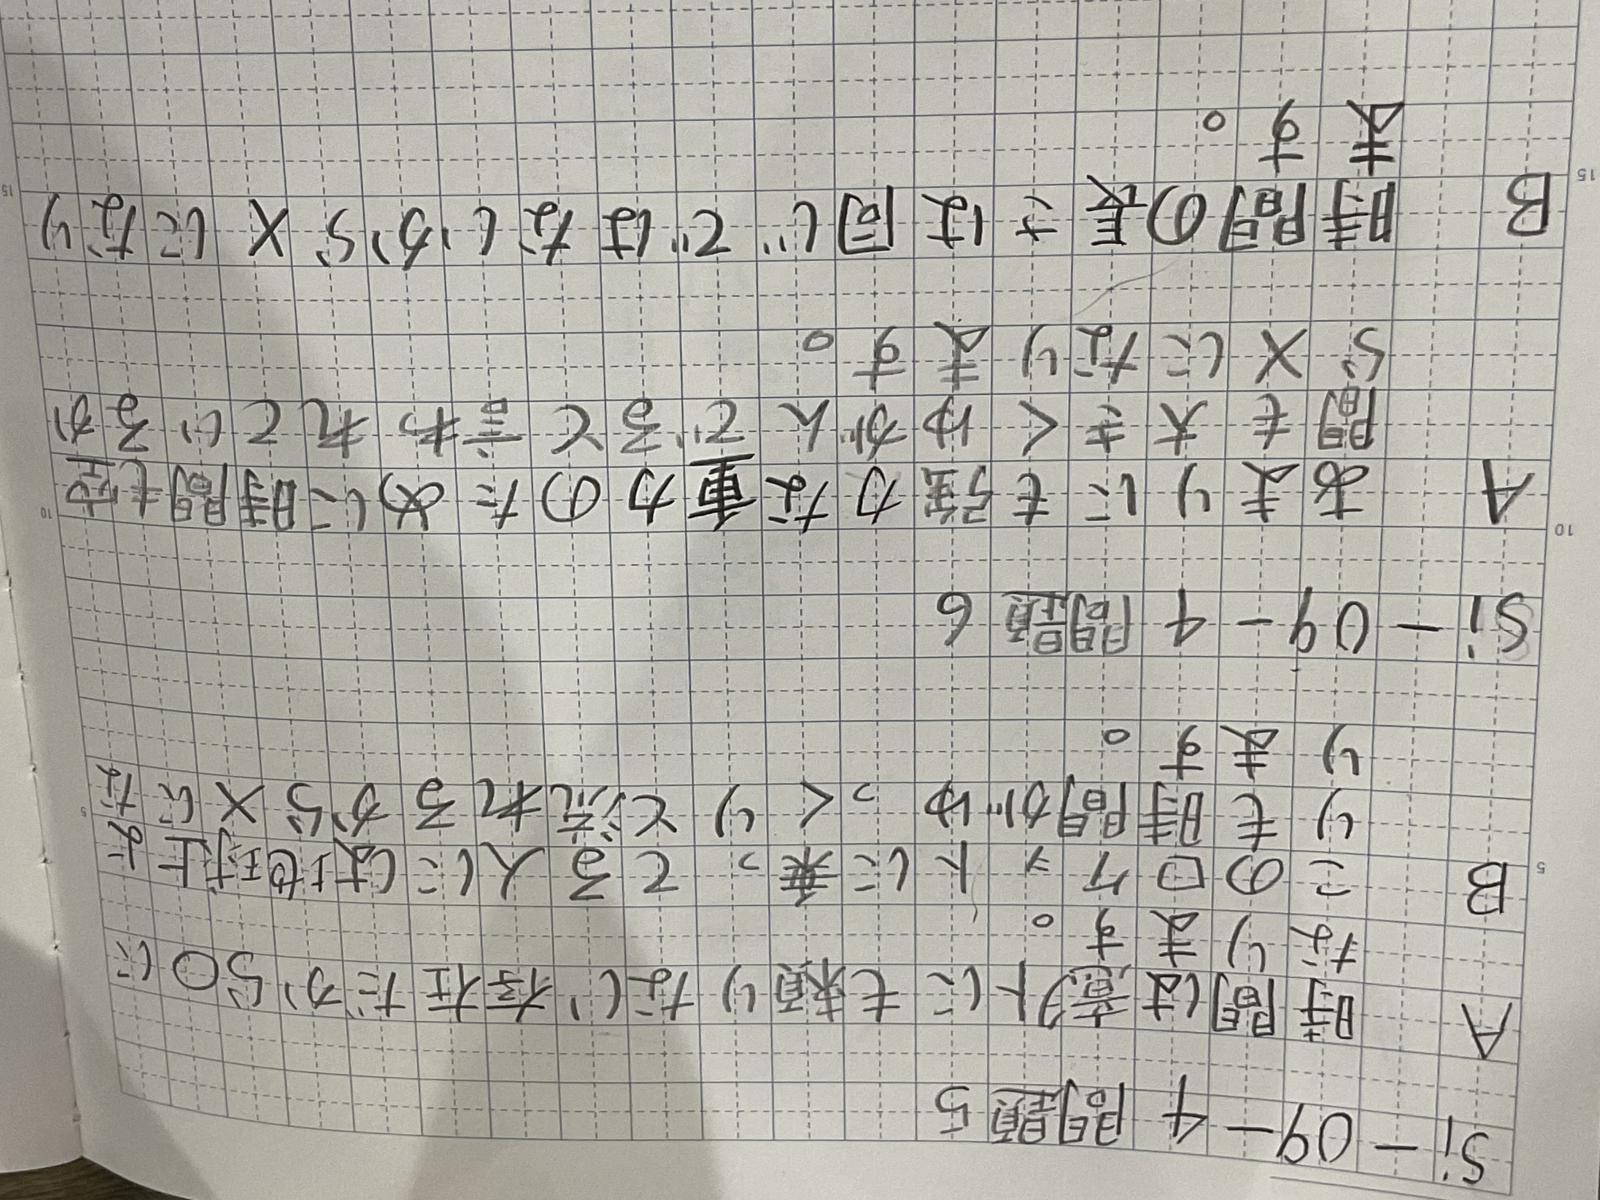 Si-09-4 問題5
A 時間は意外にも頼りない存在だから○に
なります。
B このロケットに乗ってる人には地球上よ
りも時間がゆっくりと流れるから×にな
ります。
5
Si-09-4 問題6
A あまりにも強力な重力のために時間も空
間も大きくゆがんでると言われている か
ら×になります。
10
B 時間の長さは同じではないから×になり
ます。
15